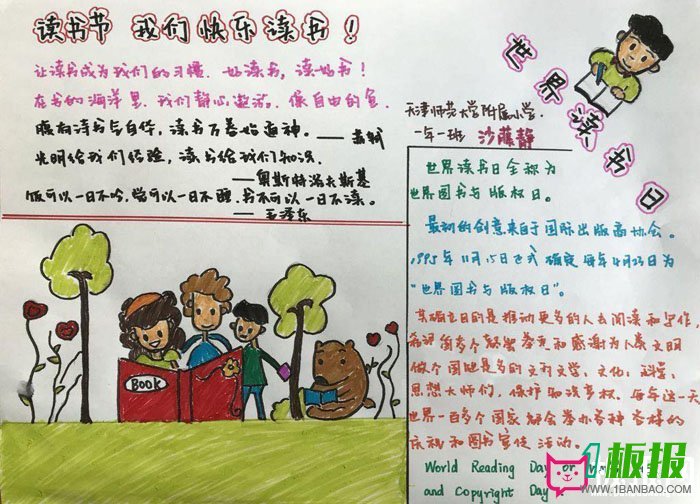 读书节 我们快乐读书！
让读书成为我们的习惯，好读书，读好书！
在书的海洋里，我们静心遨游，像自由的鱼
腹有诗书气自华，读书万卷始通神。——苏轼
光明给我们经验，读书给我们知识。
——奥斯特洛夫斯基
饭可以一日不吃，觉可以一日不睡，书不可以一日不读。
——毛泽东
BOOK
世界读书日
天津师范大学附属小学
一年一班 沙藤静
世界读书日全称为
世界图书与版权日。
最初的创意来自于国际出版商协会。
1995年11月15日正式确定每年4月23日为
“世界图书与版权日”。
其设立目的是推动更多的人去阅读和写作，
希望 都 尊重和感谢为人类文明
做 过 的文学，文化，科学，
思想大师们，保护知识产权。每年这一天
世界一百多个国家都会举办各种各样的
庆祝和图书宣传活动。
World Reading Day or World
and Copyright Day
1板报
WWW.1BANBAO.COM